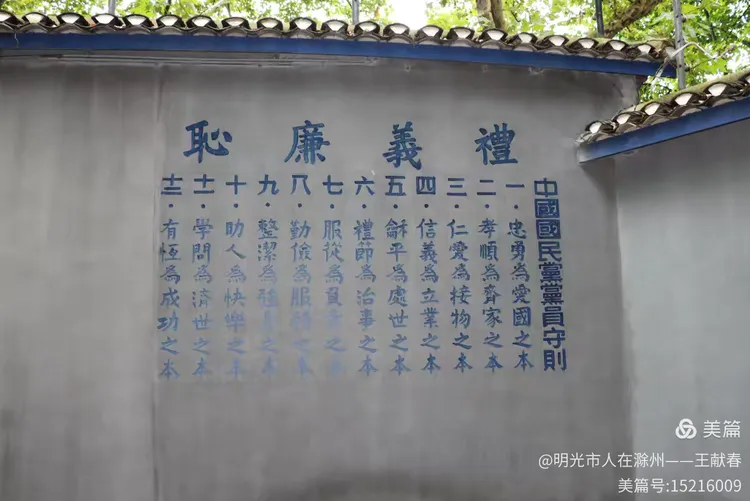 禮義廉恥
中國國民黨黨員守則
一·忠勇為愛國之本
二·孝順為齊家之本
三·仁愛為接物之本
四·信義為立業之本
五·龢平為處世之本
六·禮節為治事之本
七·服從為負責之本
八·勤儉為服務之本
九·整潔為強身之本
十·助人為快樂之本
十一·學問為濟世之本
十二·有恆為成功之本
美篇
@明光市人在滁州——王献春
美篇号:15216009